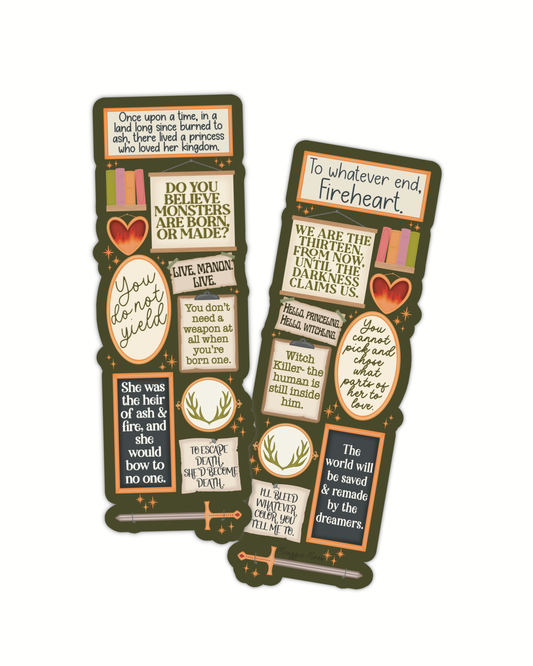 Once upon a time, in a
land long since burned to
ash, there lived a princess
who loved her kingdom.
DO YOU
BELIEVE
MONSTERS
ARE BORN,
OR MADE?
LIVE, MANON.
LIVE.
You
do not
yield.
You don't
need a
weapon at
all when
you're
born one.
She was
the heir
of ash &
fire, and
she
would
bow to
no one.
TO ESCAPE
DEATH,
SHE'D BECOME
DEATH.
To whatever end,
Fireheart.
WE ARE THE
THIRTEEN,
FROM NOW
UNTIL THE
DARKNESS
CLAIMS US.
HELLO, PRINCELING.
HELLO, WITCHLING.
You
cannot
pick and
chose
what
parts of
her to
love.
Witch
Killer- the
human is
still inside
him.
The
world will
be saved
& remade
by the
dreamers.
I'LL BLEED
WHATEVER
COLOR YOU
TELL ME TO.